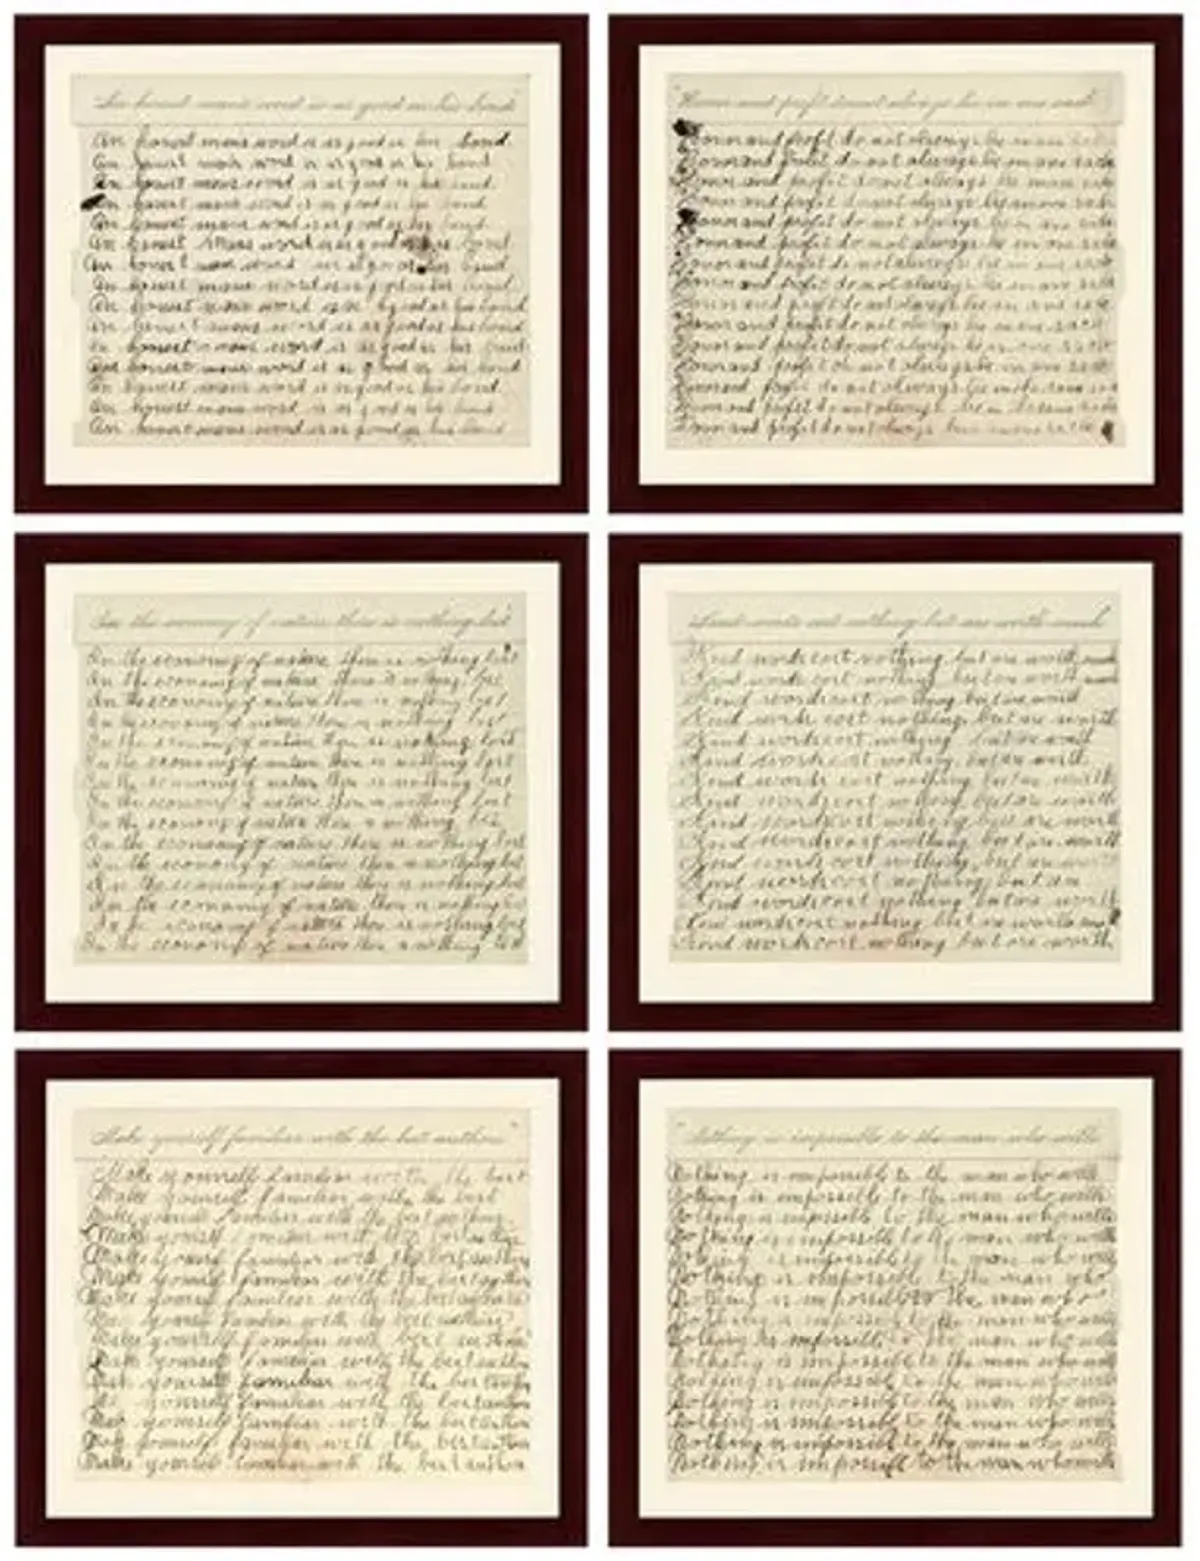 "An honest mans word is as good as his bond"
An honest mans word is as good as his bond
An honest mans word is as good as his bond
An honest mans word is as good as his bond
An honest mans word is as good as his bond
An honest mans word is as good as his bond
An honest mans word is as good as his bond
An honest mans word is as good as his bond
An honest mans word is as good as his bond
An honest mans word is as good as his bond
An honest mans word is as good as his bond
An honest mans word is as good as his bond
An honest mans word is as good as his bond
An honest mans word is as good as his bond
An honest mans word is as good as his bond
An honest mans word is as good as his bond
"Honor and profit do not always lie in one sack"
Honor and profit do not always lie in one
Honor and profit do not always lie in one sack
Honor and profit do not always lie in one
Honor and profit do not always lie in one sack
Honor and profit do not always lie in one
Honor and profit do not always lie in one sack
Honor and profit do not always lie in one sack
Honor and profit do not always lie in one sack
Honor and profit do not always lie in one sack
Honor and profit do not always lie in one sack
Honor and profit do not always lie in one sack
Honor and profit do not always lie in one sack
Honor and profit do not always lie in one sack
Honor and profit do not always lie in one sack
Honor and profit do not always lie in one sack
In the economy of nature there is nothing lost
In the economy of nature there is nothing lost
In the economy of nature there is nothing lost
In the economy of nature there is nothing lost
In the economy of nature there is nothing lost
In the economy of nature there is nothing lost
In the economy of nature there is nothing lost
In the economy of nature there is nothing lost
In the economy of nature there is nothing lost
In the economy of nature there is nothing
In the economy of nature there is nothing lost
In the economy of nature there is nothing lost
In the economy of nature there is nothing lost
In the economy of nature there is nothing
In the economy of nature there is nothing lost
In the economy of nature there is nothing lost
Kind words cost nothing but are worth much
Kind words cost nothing but are worth much
Kind words cost nothing but are worth much
Kind words cost nothing but are
Kind words cost nothing but are worth
Kind words cost nothing but are worth
Kind words cost nothing but are worth
Kind words cost nothing but are worth
Kind words cost nothing but are worth
Kind words cost nothing but are worth
Kind words cost nothing but are worth
Kind words cost nothing but are worth
Kind words cost nothing but are
Kind words cost nothing but are worth
Kind words cost nothing but are worth
Kind words cost nothing but are worth
"Make yourself familiar with the best authors"
Make yourself familiar with the best
Make yourself familiar with the best
Make familiar with the best
Make yourself familiar with the best
Make familiar with the best
Make yourself familiar with the best
Make familiar with the best
familiar with the best
Make yourself familiar with best
yourself familiar with the best
yourself familiar with the best
yourself familiar with the best
yourself familiar with the best
yourself familiar with the best
Make yourself familiar with the best author
"Nothing is impossible to the man who wills
Nothing is impossible to the man who wills
Nothing is impossible to the man who wills
Nothing is impossible to the man who wills
Nothing is impossible to the man who wills
Nothing is impossible the man who wills
Nothing is impossible to the man who
Nothing is impossible to the man who
Nothing is impossible to the man who wills
Nothing is impossible to the man who wills
Nothing is impossible to the man who wills
Nothing is impossible to the man who wills
Nothing is impossible to the man who wills
Nothing is impossible to the man who wills
Nothing is impossible to the man who wills
Nothing is impossible to the man who wills